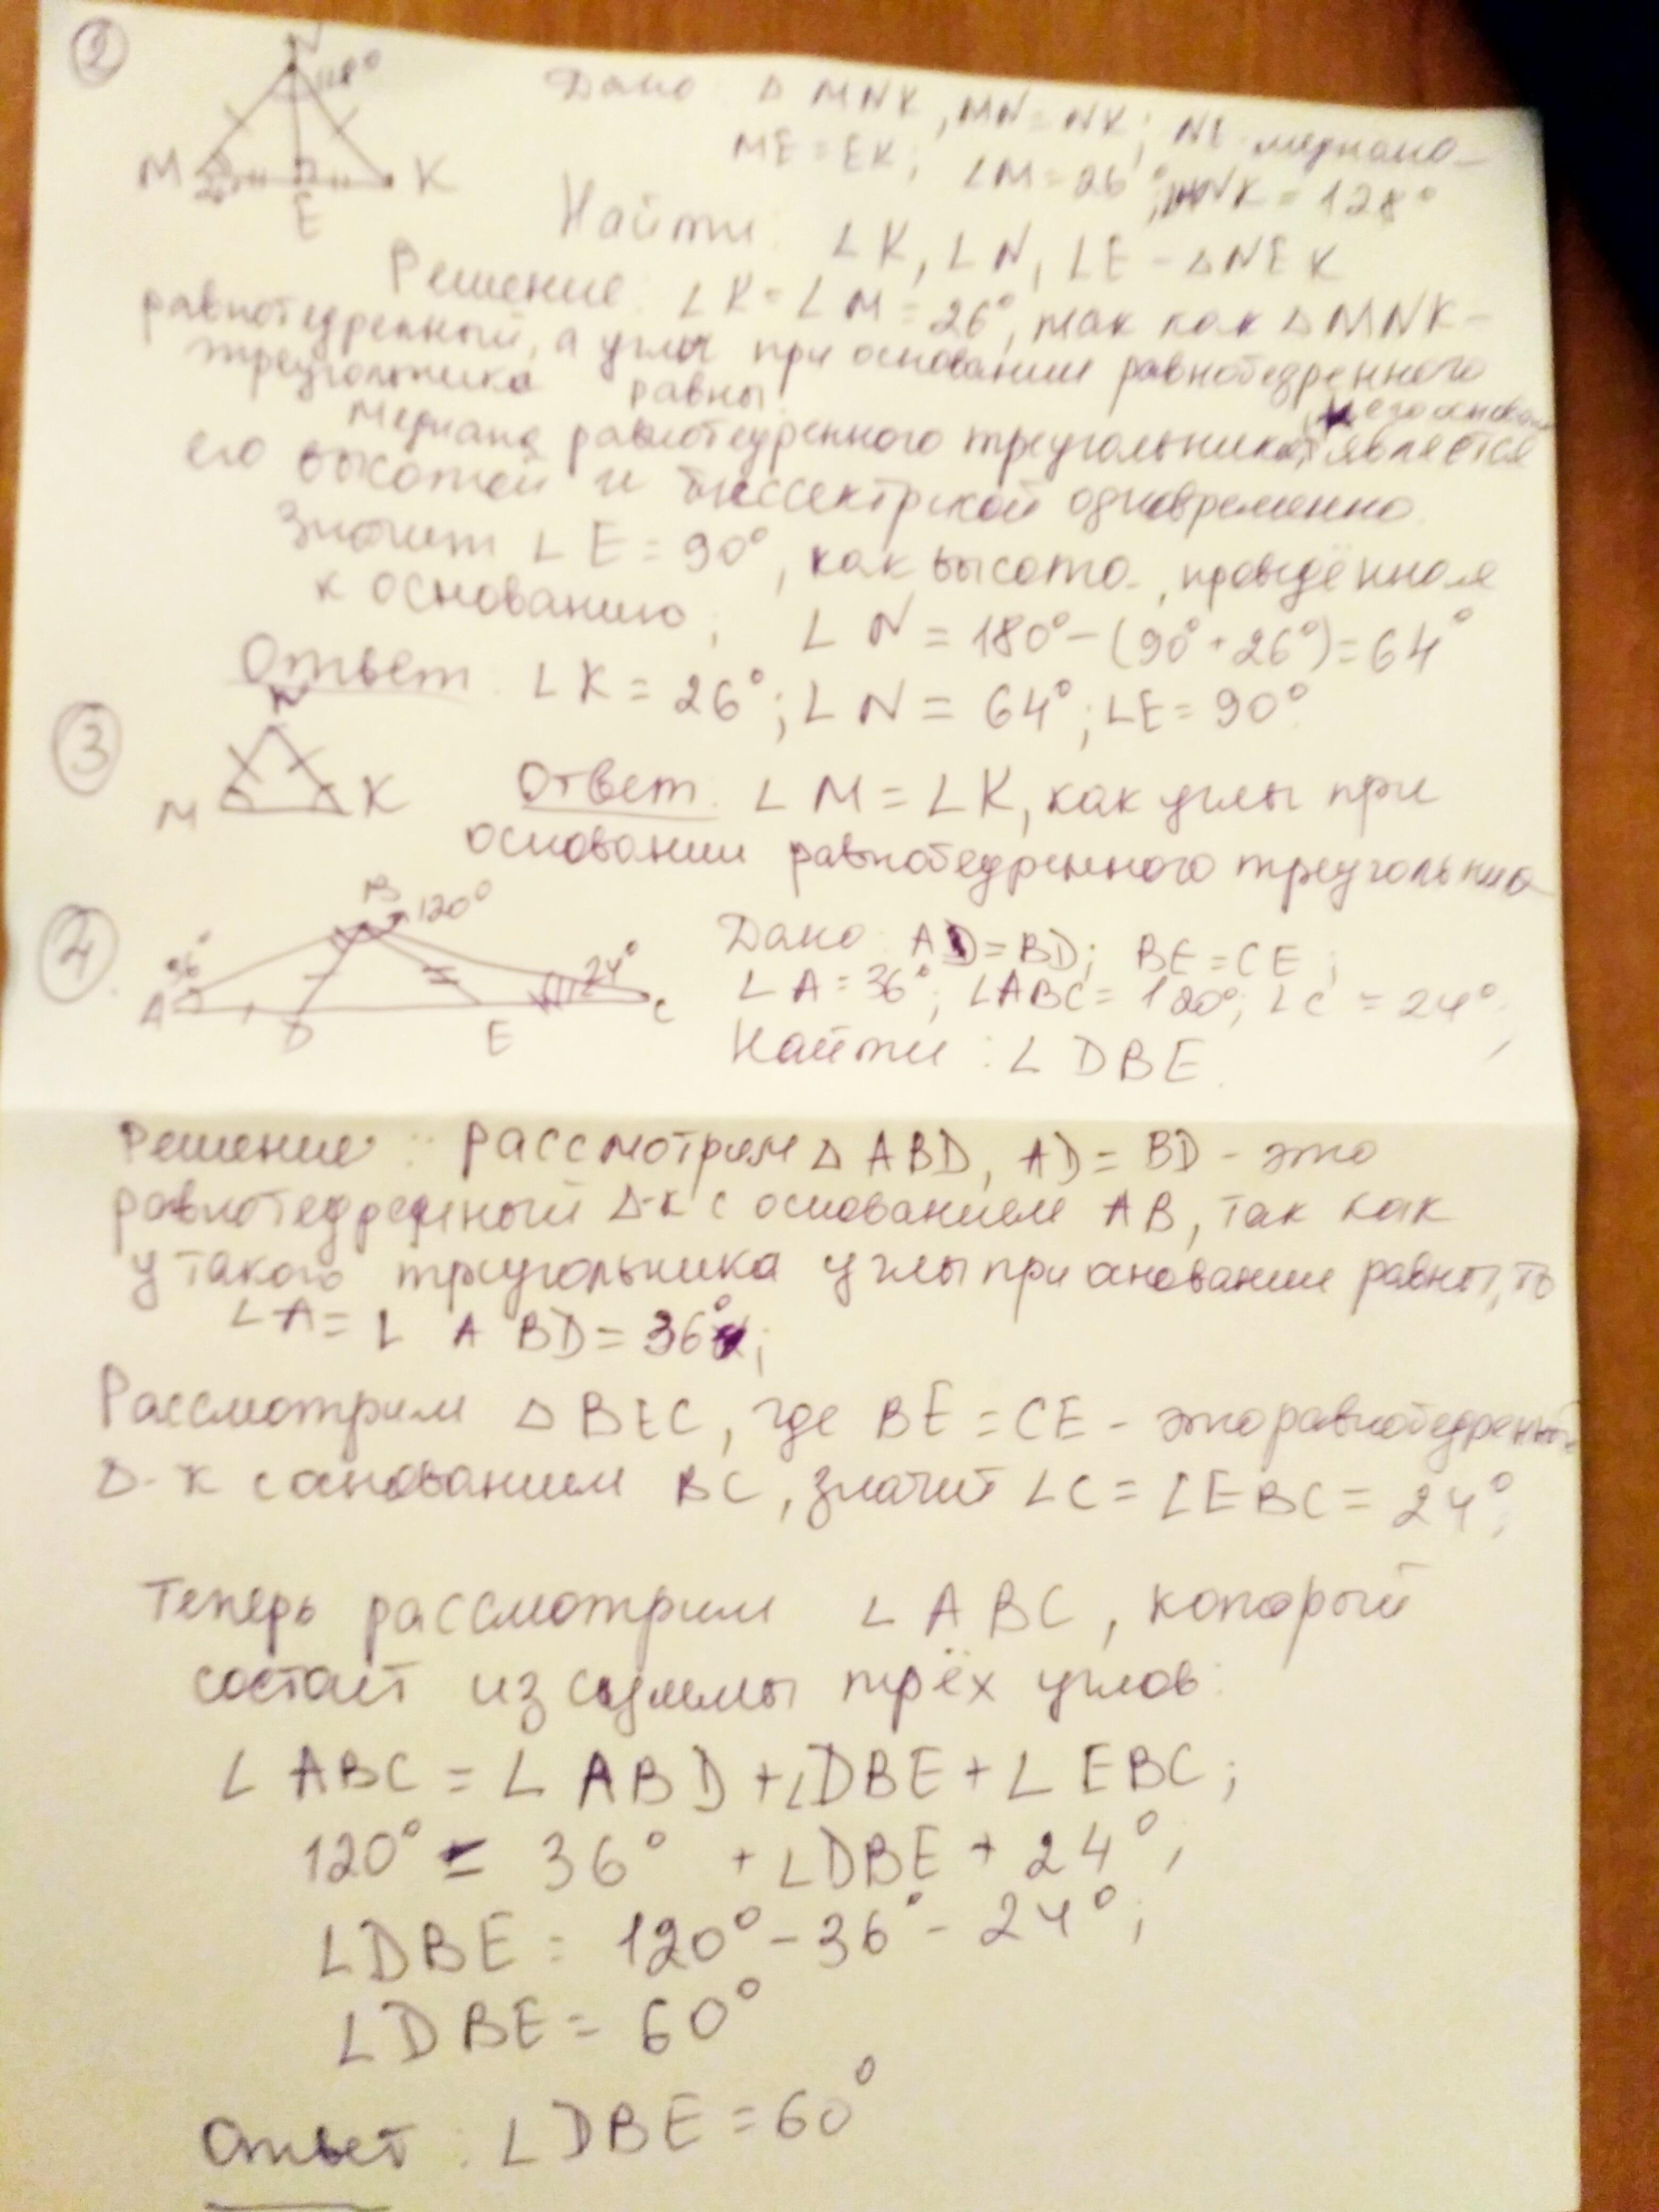 2
N
118°
M
26°
K
E
Дано: Δ MNK, MN = NK; NE - медиана
ME = EK; ∠M = 26°; MNK = 128°
Найти: ∠K, ∠N, ∠E - ΔNEK
Решение: ∠K = ∠M = 26°, так как ΔMNK -
равнобедренный, а углы при основании равнобедренного
треугольника равны.
Медиана равнобедренного треугольника, является
его высотой и биссектрисой одновременно.
Значит ∠E = 90°, как высота, проведённая
к основанию; ∠N = 180° - (90° + 26°) = 64°
Ответ: ∠K = 26°; ∠N = 64°; ∠E = 90°.
3
N
M
K
Ответ: ∠M = ∠K, как углы при
основании равнобедренного треугольника
4
B
120°
36°
24°
A
D
E
C
Дано: AD = BD; BE = CE;
∠A = 36°; ∠ABC = 120°; ∠C = 24°;
Найти: ∠DBE.
Решение: Рассмотрим Δ ABD, AD = BD - это
равнобедренный Δ-к с основанием AB, так как
у такого треугольника углы при основании равны, то
∠A = ∠ABD = 36°;
Рассмотрим Δ BEC, где BE = CE - это равнобедренный
Δ-к с основанием BC, значит ∠C = ∠EBC = 24°;
Теперь рассмотрим ∠ABC, который
состоит из суммы трёх углов:
∠ABC = ∠ABD + ∠DBE + ∠EBC;
120° = 36° + ∠DBE + 24°;
∠DBE = 120° - 36° - 24°;
∠DBE = 60°
Ответ: ∠DBE = 60°